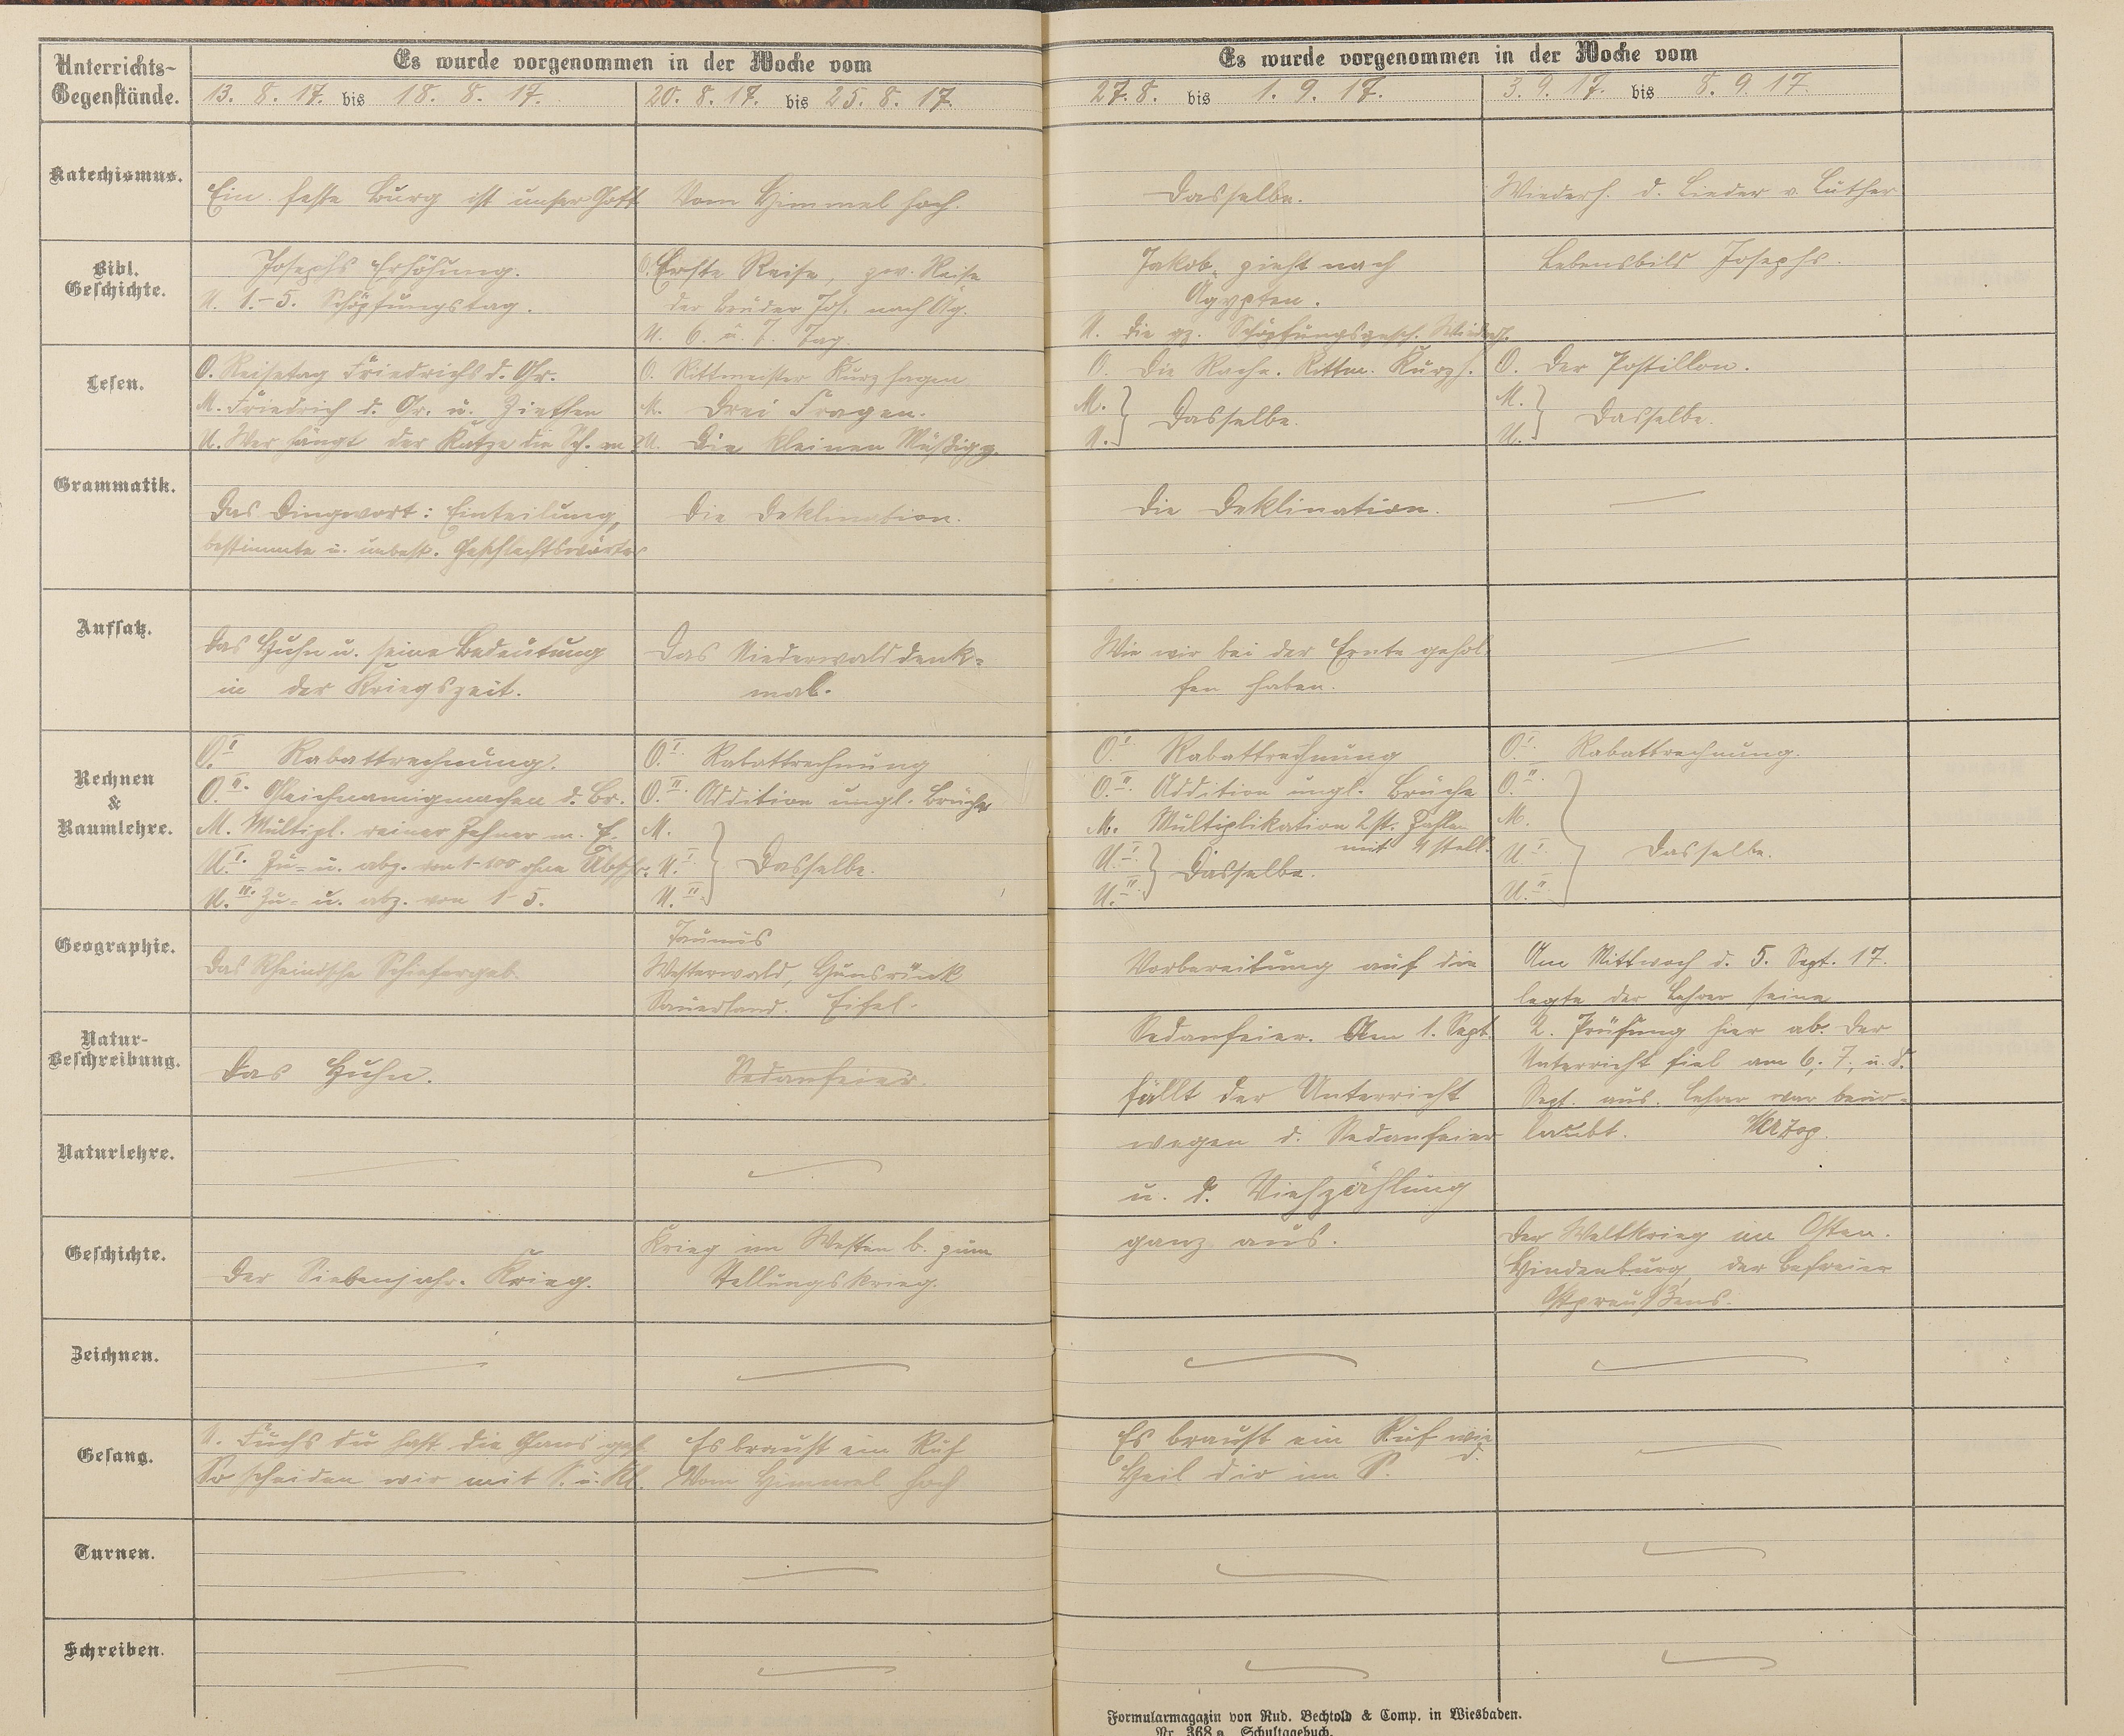 Unterrichts-
Gegenstände.
Es wurde vorgenommen in der Woche vom
13. 8. 17. bis 18. 8. 17.
20. 8. 17. bis 25. 8. 17.
Es wurde vorgenommen in der Woche vom
27. 8. bis 1. 9. 17.
3. 9. 17. bis 8. 9. 17.
Katechismus.
Ein feste Burg ist unser Gott
Vom Himmel hoch.
Dasselbe.
Wiederh. d. Lieder v. Luther
Bibl.
Geschichte.
Josephs Erhöhung.
U. 1.-5. Schöpfungstag.
O. Erste Reise, zw. Reise
der Brüder Jos. nach Äg.
U. 6. u. 7. Tag.
Jakob zieht nach
Ägypten.
U. Die gz. Schöpfungsgesch. Wiederh.
Lebensbild Josephs.
Lesen.
O. Reisetag Friedrichs d. Gr.
M. Friedrich d. Gr. u. Ziethen
U. Wer hängt der Katze die Sch. an?
O. Rittmeister Kurzhagen
M. Drei Fragen.
U. Die kleinen Müßigg.
O. Die Rache. Rittm. Kurzh.
M.
U. Dasselbe.
O. Der Postillon.
M.
U. Dasselbe.
Grammatik.
Das Dingwort: Einteilung,
bestimmte u. unbest. Geschlechtswörter
Die Deklination.
Die Deklination.
Aufsatz.
Das Huhn u. seine Bedeutung
in der Kriegszeit.
Das Niederwalddenk-
mal.
Wie wir bei der Ernte gehol-
fen haben.
Rechnen
&
Raumlehre.
O. I Rabattrechnung.
O. II. Gleichnamigmachen d. Br.
M. Multipl. reiner Zehner m. E.
U. I. Zu- u. abz. von 1-100 ohne Übschr.
U. II. Zu- u. abz. von 1-5.
O. I. Rabattrechnung
O. II. Addition ungl. Brüche
M.
U. I. Dasselbe.
U. II.
O. I. Rabattrechnung
O. II. Addition ungl. Brüche
M. Multiplikation 2 st. Zahlen
mit 1 stell.
U. I.
U. II. Dasselbe.
O. I. Rabattrechnung.
O. II.
M.
U. I. Dasselbe.
U. II.
Geographie.
Das Rheinische Schiefergeb.
Taunus
Westerwald, Hunsrück
Sauerland. Eifel.
Vorbereitung auf die
Am Mittwoch d. 5. Sept. 17.
legte der Lehrer seine
Natur-
Beschreibung.
Das Huhn.
Sedanfeier.
Sedanfeier. Am 1. Sept.
fällt der Unterricht
2. Prüfung hier ab. Der
Unterricht fiel am 6., 7., u. 8.
Sept. aus. Lehrer war beur-
Naturlehre.
wegen d. Sedanfeier
u. d. Viehzählung
laubt.
Geschichte.
Der Siebenjähr. Krieg.
Krieg im Westen b. zum
Stellungskrieg.
ganz aus.
Der Weltkrieg im Osten.
Hindenburg, der Befreier
Ostpreußens.
Zeichnen.
Gesang.
U. Fuchs du hast die Gans gest.
So scheiden wir mit S. u. Kl.
Es braust ein Ruf
Vom Himmel hoch
Es braust ein Ruf wie
d.
Heil dir im S.
Turnen.
Schreiben.
Formularmagazin von Rud. Bechtold & Comp. in Wiesbaden.
Nr. 368a. Schultagebuch.